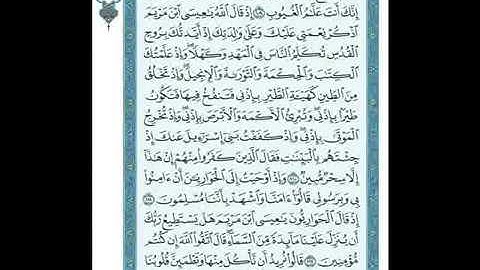 إِنَّكَ أَنتَ عَلَّٰمُ ٱلْغُيُوبِ ۝١٠٩ إِذْ قَالَ ٱللَّهُ يَٰعِيسَى ٱبْنَ مَرْيَمَ
ٱذْكُرْ نِعْمَتِي عَلَيْكَ وَعَلَىٰ وَٰلِدَتِكَ إِذْ أَيَّدتُّكَ بِرُوحِ
ٱلْقُدُسِ تُكَلِّمُ ٱلنَّاسَ فِي ٱلْمَهْدِ وَكَهْلًا ۖ وَإِذْ عَلَّمْتُكَ
ٱلْكِتَٰبَ وَٱلْحِكْمَةَ وَٱلتَّوْرَىٰةَ وَٱلْإِنجِيلَ ۖ وَإِذْ تَخْلُقُ
مِنَ ٱلطِّينِ كَهَيْـَٔةِ ٱلطَّيْرِ بِإِذْنِي فَتَنفُخُ فِيهَا فَتَكُونُ
طَيْرًۢا بِإِذْنِي ۖ وَتُبْرِئُ ٱلْأَكْمَهَ وَٱلْأَبْرَصَ بِإِذْنِي ۖ وَإِذْ تُخْرِجُ
ٱلْمَوْتَىٰ بِإِذْنِي ۖ وَإِذْ كَفَفْتُ بَنِيٓ إِسْرَٰٓءِيلَ عَنكَ إِذْ
جِئْتَهُم بِٱلْبَيِّنَٰتِ فَقَالَ ٱلَّذِينَ كَفَرُوا۟ مِنْهُمْ إِنْ هَٰذَآ
إِلَّا سِحْرٌ مُّبِينٌ ۝١١٠ وَإِذْ أَوْحَيْتُ إِلَى ٱلْحَوَارِيِّۦنَ أَنْ ءَامِنُوا۟
بِي وَبِرَسُولِي قَالُوٓا۟ ءَامَنَّا وَٱشْهَدْ بِأَنَّنَا مُسْلِمُونَ ۝١١١
إِذْ قَالَ ٱلْحَوَارِيُّونَ يَٰعِيسَى ٱبْنَ مَرْيَمَ هَلْ يَسْتَطِيعُ رَبُّكَ
أَن يُنَزِّلَ عَلَيْنَا مَآئِدَةً مِّنَ ٱلسَّمَآءِ ۖ قَالَ ٱتَّقُوا۟ ٱللَّهَ إِن كُنتُم
مُّؤْمِنِينَ ۝١١٢ قَالُوا۟ نُرِيدُ أَن نَّأْكُلَ مِنْهَا وَتَطْمَئِنَّ قُلُوبُنَا